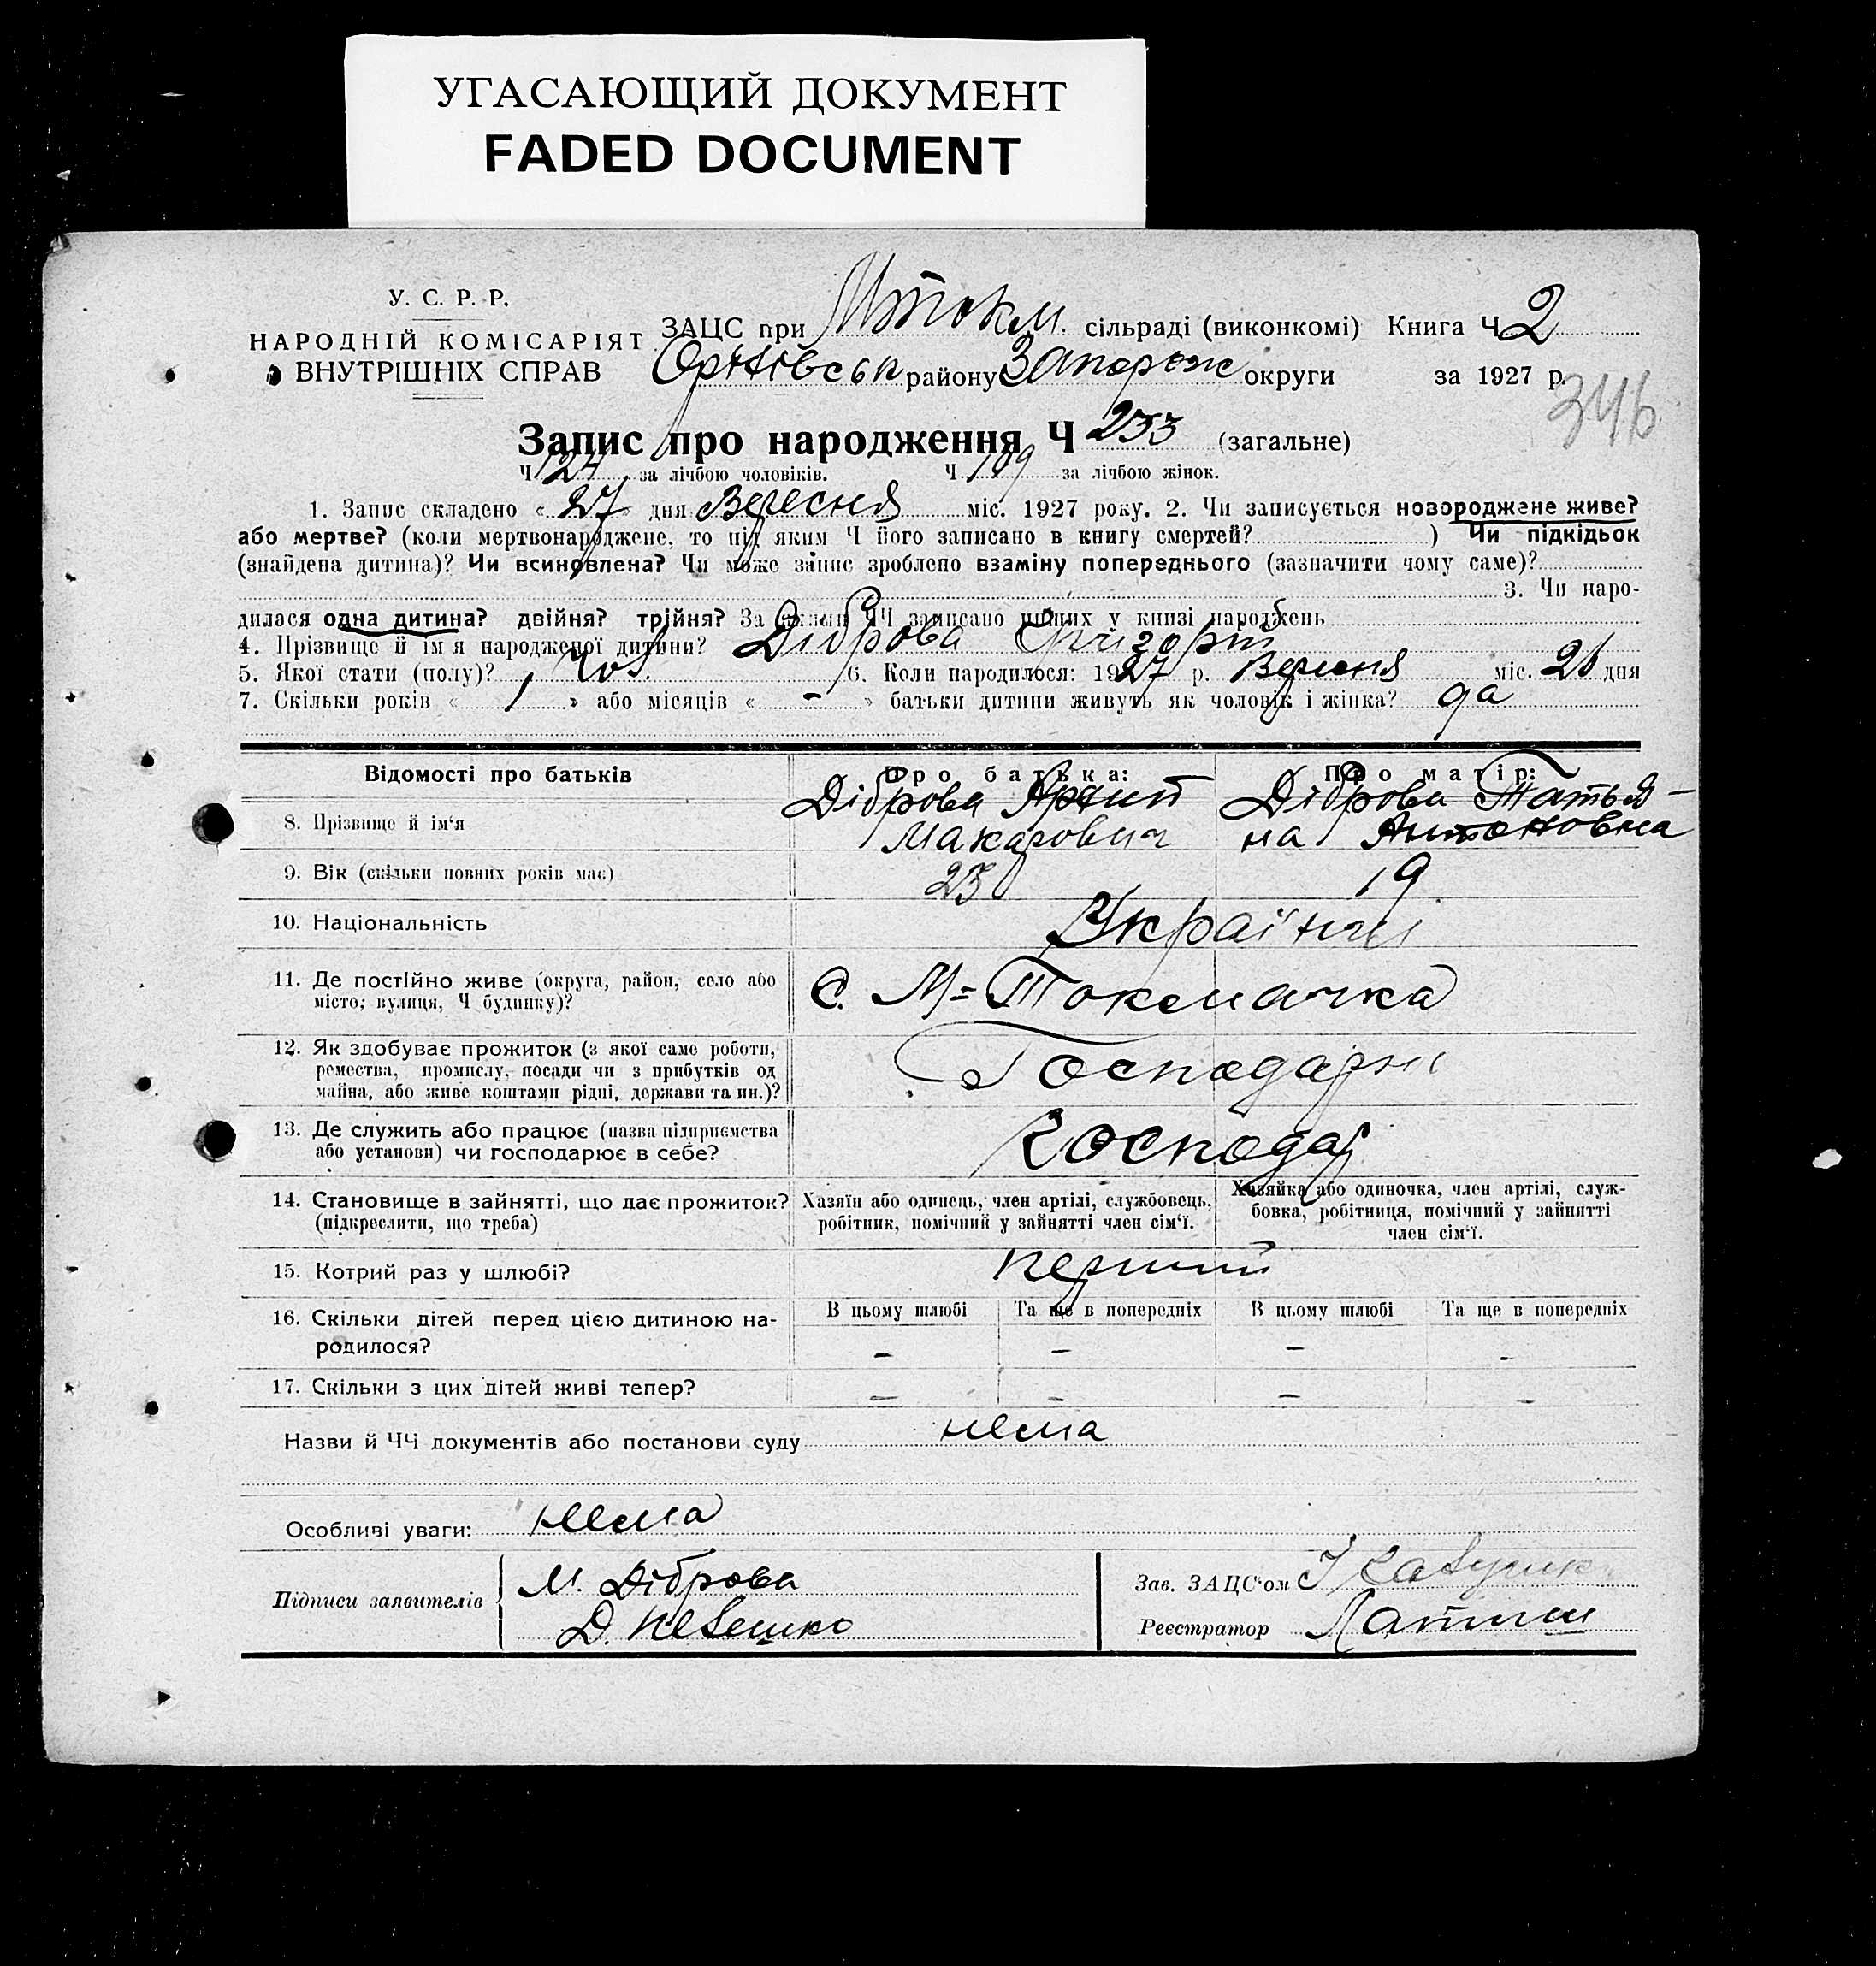 УГАСАЮЩИЙ ДОКУМЕНТ
FADED DOCUMENT
У. С. Р. Р.
НАРОДНІЙ КОМІСАРІЯТ
ВНУТРІШНІХ СПРАВ
ЗАЦС при Мтокм. сільраді (виконкомі) Книга Ч 2
Оріхівськ району Запорож округи за 1927 р.
346
Запис про народження Ч 233 (загальне)
Ч 124 за лічбою чоловіків. Ч 109 за лічбою жінок.
1. Запис складено « 27 дня Вересня міс. 1927 року. 2. Чи записується новороджене живе?
або мертве? (коли мертвонароджене, то під яким Ч його записано в книгу смертей? ) Чи підкідьок
(знайдена дитина)? Чи всиновлена? Чи може запис зроблено взаміну попереднього (зазначити чому саме)?
3. Чи наро-
дилася одна дитина? двійня? трійня? За ЧЧ записано инших у книзі народжень
4. Прізвище й ім'я народженої дитини? Діброва Григорій
5. Якої статі (полу)? чол. 6. Коли народилося: 1927 р. Вересня міс. 26 дня
7. Скільки років « 1 » або місяців « - » батьки дитини живуть як чоловік і жінка? да
Відомості про батьків Про батька: Про матір:
8. Прізвище й ім'я
Діброва Архип
Макарович
Діброва Татья-
на Антоновна
9. Вік (скільки повних років має) 23 19
10. Національність Українці
11. Де постійно живе (округа, район, село або
місто, вулиця, Ч будинку)?
С. М=Токмачка
12. Як здобуває прожиток (з якої саме роботи,
ремества, промислу, посади чи з прибутків од
майна, або живе коштами рідні, держави та ин.)?
Господарні
13. Де служить або працює (назва підприємства
або установи) чи господарює в себе?
господар
14. Становище в зайнятті, що дає прожиток?
(підкреслити, що треба)
Хазяїн або одинець, член артілі, службовець,
робітник, помічний у зайнятті член сім'ї.
Хазяйка або одиночка, член артілі, служ-
бовка, робітниця, помічний у зайнятті
член сім'ї.
15. Котрий раз у шлюбі? перший
16. Скільки дітей перед цією дитиною на-
родилося?
В цьому шлюбі Та ще в попередніх В цьому шлюбі Та ще в попередніх
– – – –
17. Скільки з цих дітей живі тепер? – – – –
Назви й ЧЧ документів або постанови суду нема
Особливі уваги: нема
Підписи заявителів
М. Діброва
Д.
Зав. ЗАЦС'ом
Реєстратор Латиш